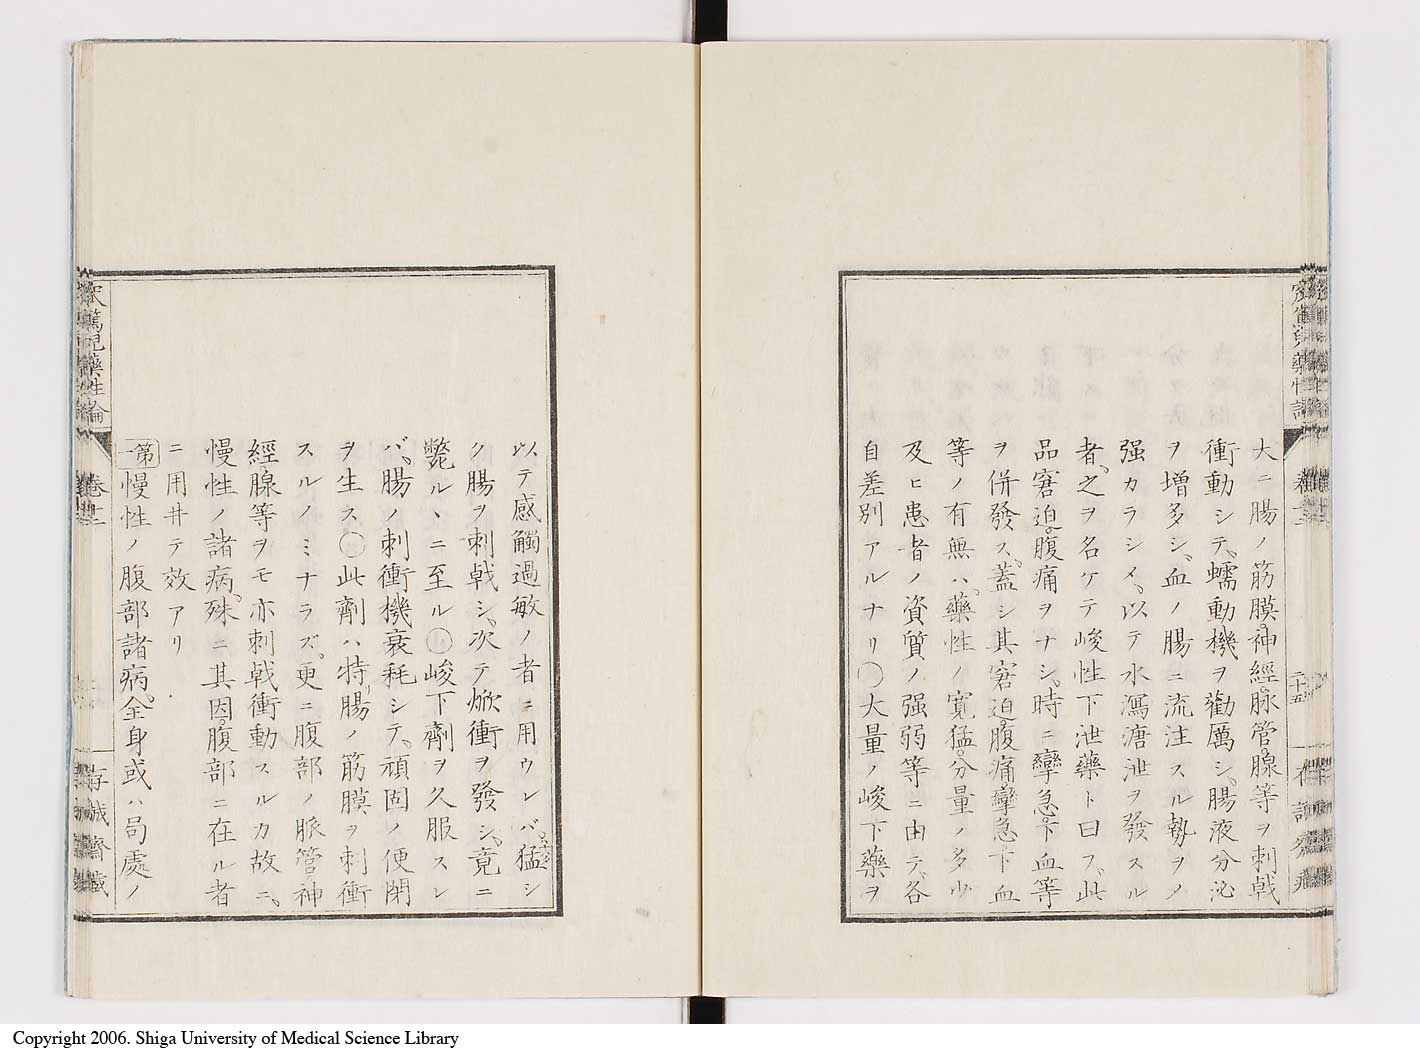 大ニ腸ノ筋膜。神經。脉管。腺等ヲ刺戟
衝動シテ、蠕動機ヲ勸厲シ、腸液分泌
ヲ增多シ、血ノ腸ニ流注スル勢ヲノ
强カラシメ、以テ水瀉溏泄ヲ發スル
者、之ヲ名ケテ峻性下泄藥ト曰フ、此
品窘迫。腹痛ヲナシ、時ニ攣急。下血等
ヲ併發ス、蓋シ其窘迫。腹痛。攣急。下血
等ノ有無ハ、藥性ノ寬猛。分量ノ多少
及ヒ患者ノ資質ノ强弱等ニ由テ、各
自差別アルナリ〇大量ノ峻下藥ヲ
以テ感觸過敏ノ者ニ用ウレバ、猛シ
ク腸ヲ刺戟シ、次テ焮衝ヲ發シ、竟ニ
斃ルヽニ至ル〇峻下劑ヲ久服スレ
バ、腸ノ刺衝機衰耗シテ、頑固ノ便閉
ヲ生ス〇此劑ハ特リ腸ノ筋膜ヲ刺衝
スルノミナラズ、更ニ腹部ノ脈管。神
經。腺等ヲモ亦刺戟衝動スルカ故ニ、
慢性ノ諸病、殊ニ其因。腹部ニ在ル者
ニ用井テ效アリ
第一慢性ノ腹部諸病。全身或ハ局處ノ
藥性論
Copyright 2006. Shiga University of Medical Science Library